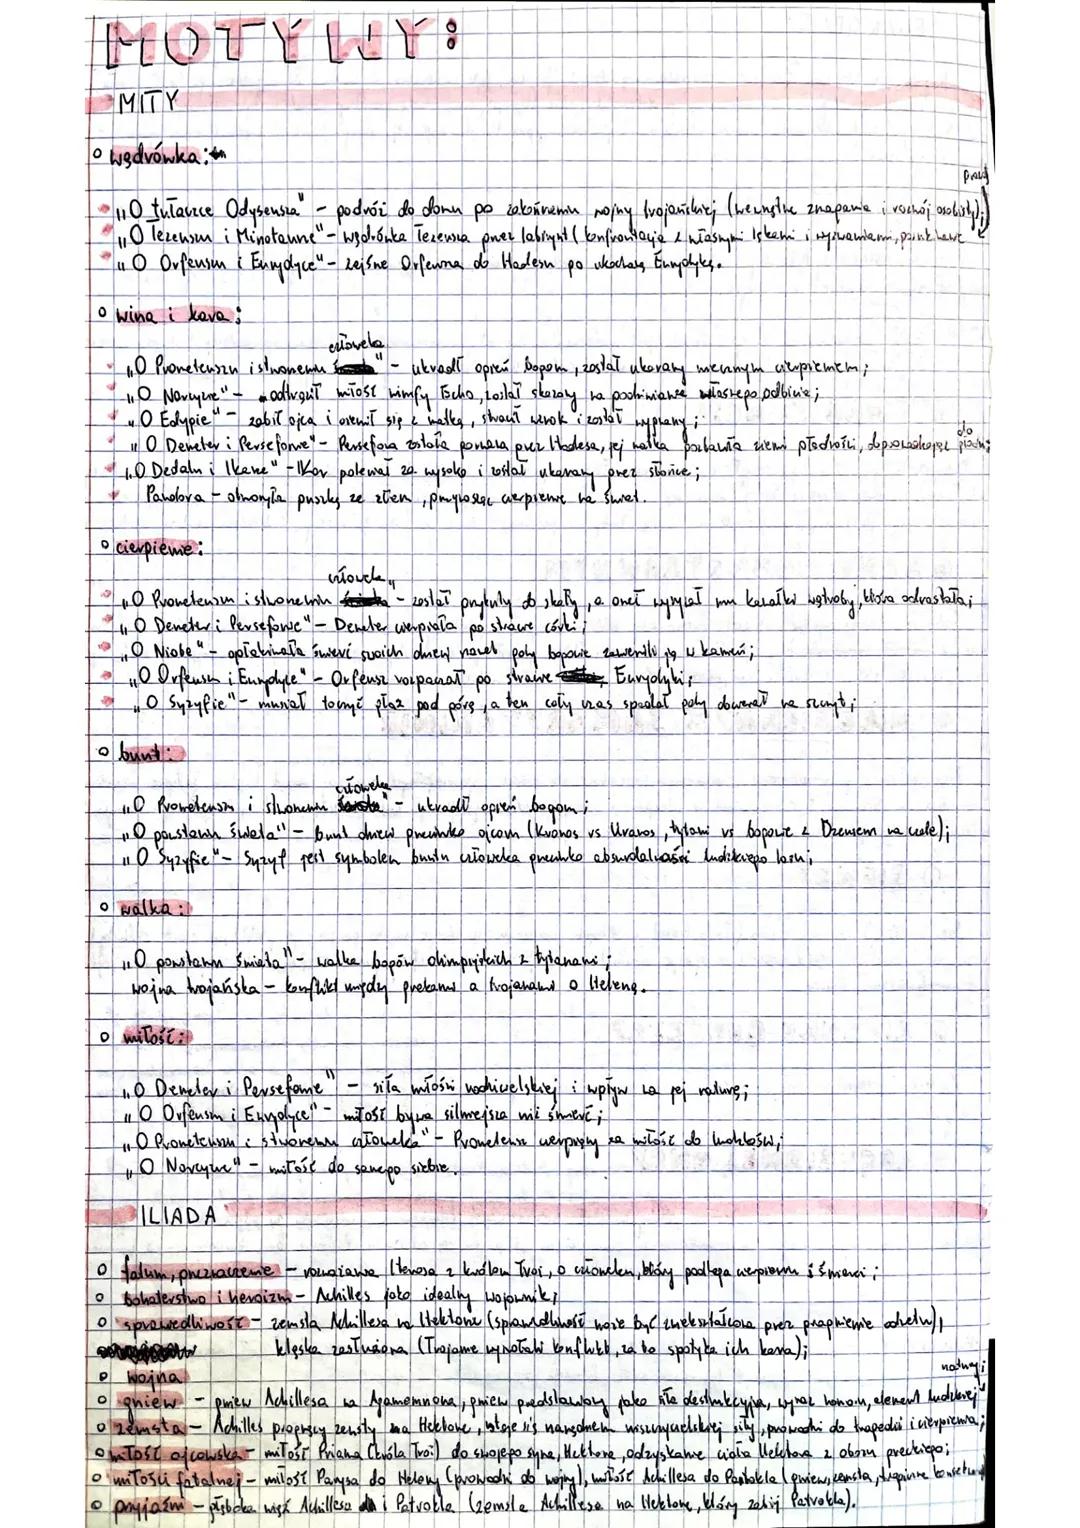 MOTYWY:
MITY
wędrówka:
prawd
„O tułaczce Odyseusza" - podróż do domu po zakończeniu wojny trojańskiej (wewnętrzne zmagania i rozwój osobisty);
„O Tezeuszu i Minotaurze" - wędrówka Tezeusza przez labirynt (konfrontacja z własnymi lękami i wyzwaniami,
„O Orfeuszu i Eurydyce" - zejście Orfeusza do Hadesu po ukochaną Eurydykę.
wina i kara:
człowieka
„O Prometeuszu i stworzeniu " - ukradł ogień bogom, został ukarany wiecznym cierpieniem;
„O Narcyzie" - odtrącił miłość nimfy Echo, został skazany na podziwianie własnego odbicia;
„O Edypie" - zabił ojca i ożenił się z matką, stracił wzrok i został wygnany;
„O Demeter i Persefonie" - Persefona została porwana przez Hadesa, jej matka pozbawiła ziemi płodności, doprowadzając do głodu;
„O Dedalu i Ikarze" - Ikar poleciał za wysoko i został ukarany przez słońce;
Pandora - otworzyła puszkę ze złem, przynosząc cierpienie na świat.
cierpienie:
człowieka
„O Prometeuszu i stworzeniu " - został przykuty do skały, a orzeł wyrywał mu kawałki wątroby, która odrastała;
„O Demeter i Persefonie" - Demeter cierpiała po stracie córki;
„O Niobe" - opłakiwała śmierć swoich dzieci nawet gdy bogowie zamienili ją w kamień;
„O Orfeuszu i Eurydyce" - Orfeusz rozpaczał po stracie Eurydyki;
„O Syzyfie" - musiał toczyć głaz pod górę, a ten cały czas spadał gdy docierał na szczyt;
bunt:
człowieka
„O Prometeuszu i stworzeniu " - ukradł ogień bogom;
„O powstaniu świata" - bunt dzieci przeciwko ojcom (Kronos vs Uranos, tytani vs bogowie z Dzeusem na czele);
„O Syzyfie" - Syzyf jest symbolem buntu człowieka przeciwko absurdalności ludzkiego losu;
walka:
„O powstaniu świata" - walka bogów olimpijskich z tytanami;
wojna trojańska - konflikt między grekami a trojanami o Helenę.
miłość:
„O Demeter i Persefonie" - siła miłości rodzicielskiej i wpływ na jej naturę;
„O Orfeuszu i Eurydyce" - miłość bywa silniejsza niż śmierć;
„O Prometeuszu i stworzeniu człowieka" - Prometeusz cierpiący za miłość do ludzkości;
„O Narcyzie" - miłość do samego siebie.
ILIADA
fatum, przeznaczenie - rozmowa z królem Troi, o człowieku, który podlega cierpieniu i śmierci;
bohaterstwo i heroizm - Achilles jako idealny wojownik;
sprawiedliwość - zemsta Achillesa na Hektorze (sprawiedliwość może być zniekształcona przez pragnienie odwetu),
klęska zasłużona (Trojanie wywołali konflikt, za to spotyka ich kara);
wojna
gniew - gniew Achillesa na Agamemnona, gniew przedstawiony jako siła destrukcyjna, wyraz honoru, element ludzkiej natury;
zemsta - Achilles pragnący zemsty na Hektorze, staje się narzędziem niszczycielskiej siły, prowadzi do tragedii i cierpienia;
miłość ojcowska - miłość Priama (króla Troi) do swojego syna, Hektora, odzyskanie ciała Hektora z obozu greckiego;
miłości fatalnej - miłość Parysa do Heleny (prowadzi do wojny), miłość Achillesa do Patrokla (gniew, zemsta, tragiczne konsekwencje)
przyjaźni - głęboka więź Achillesa i Patrokla (zemsta Achillesa na Hektorze, który zabił Patrokla).